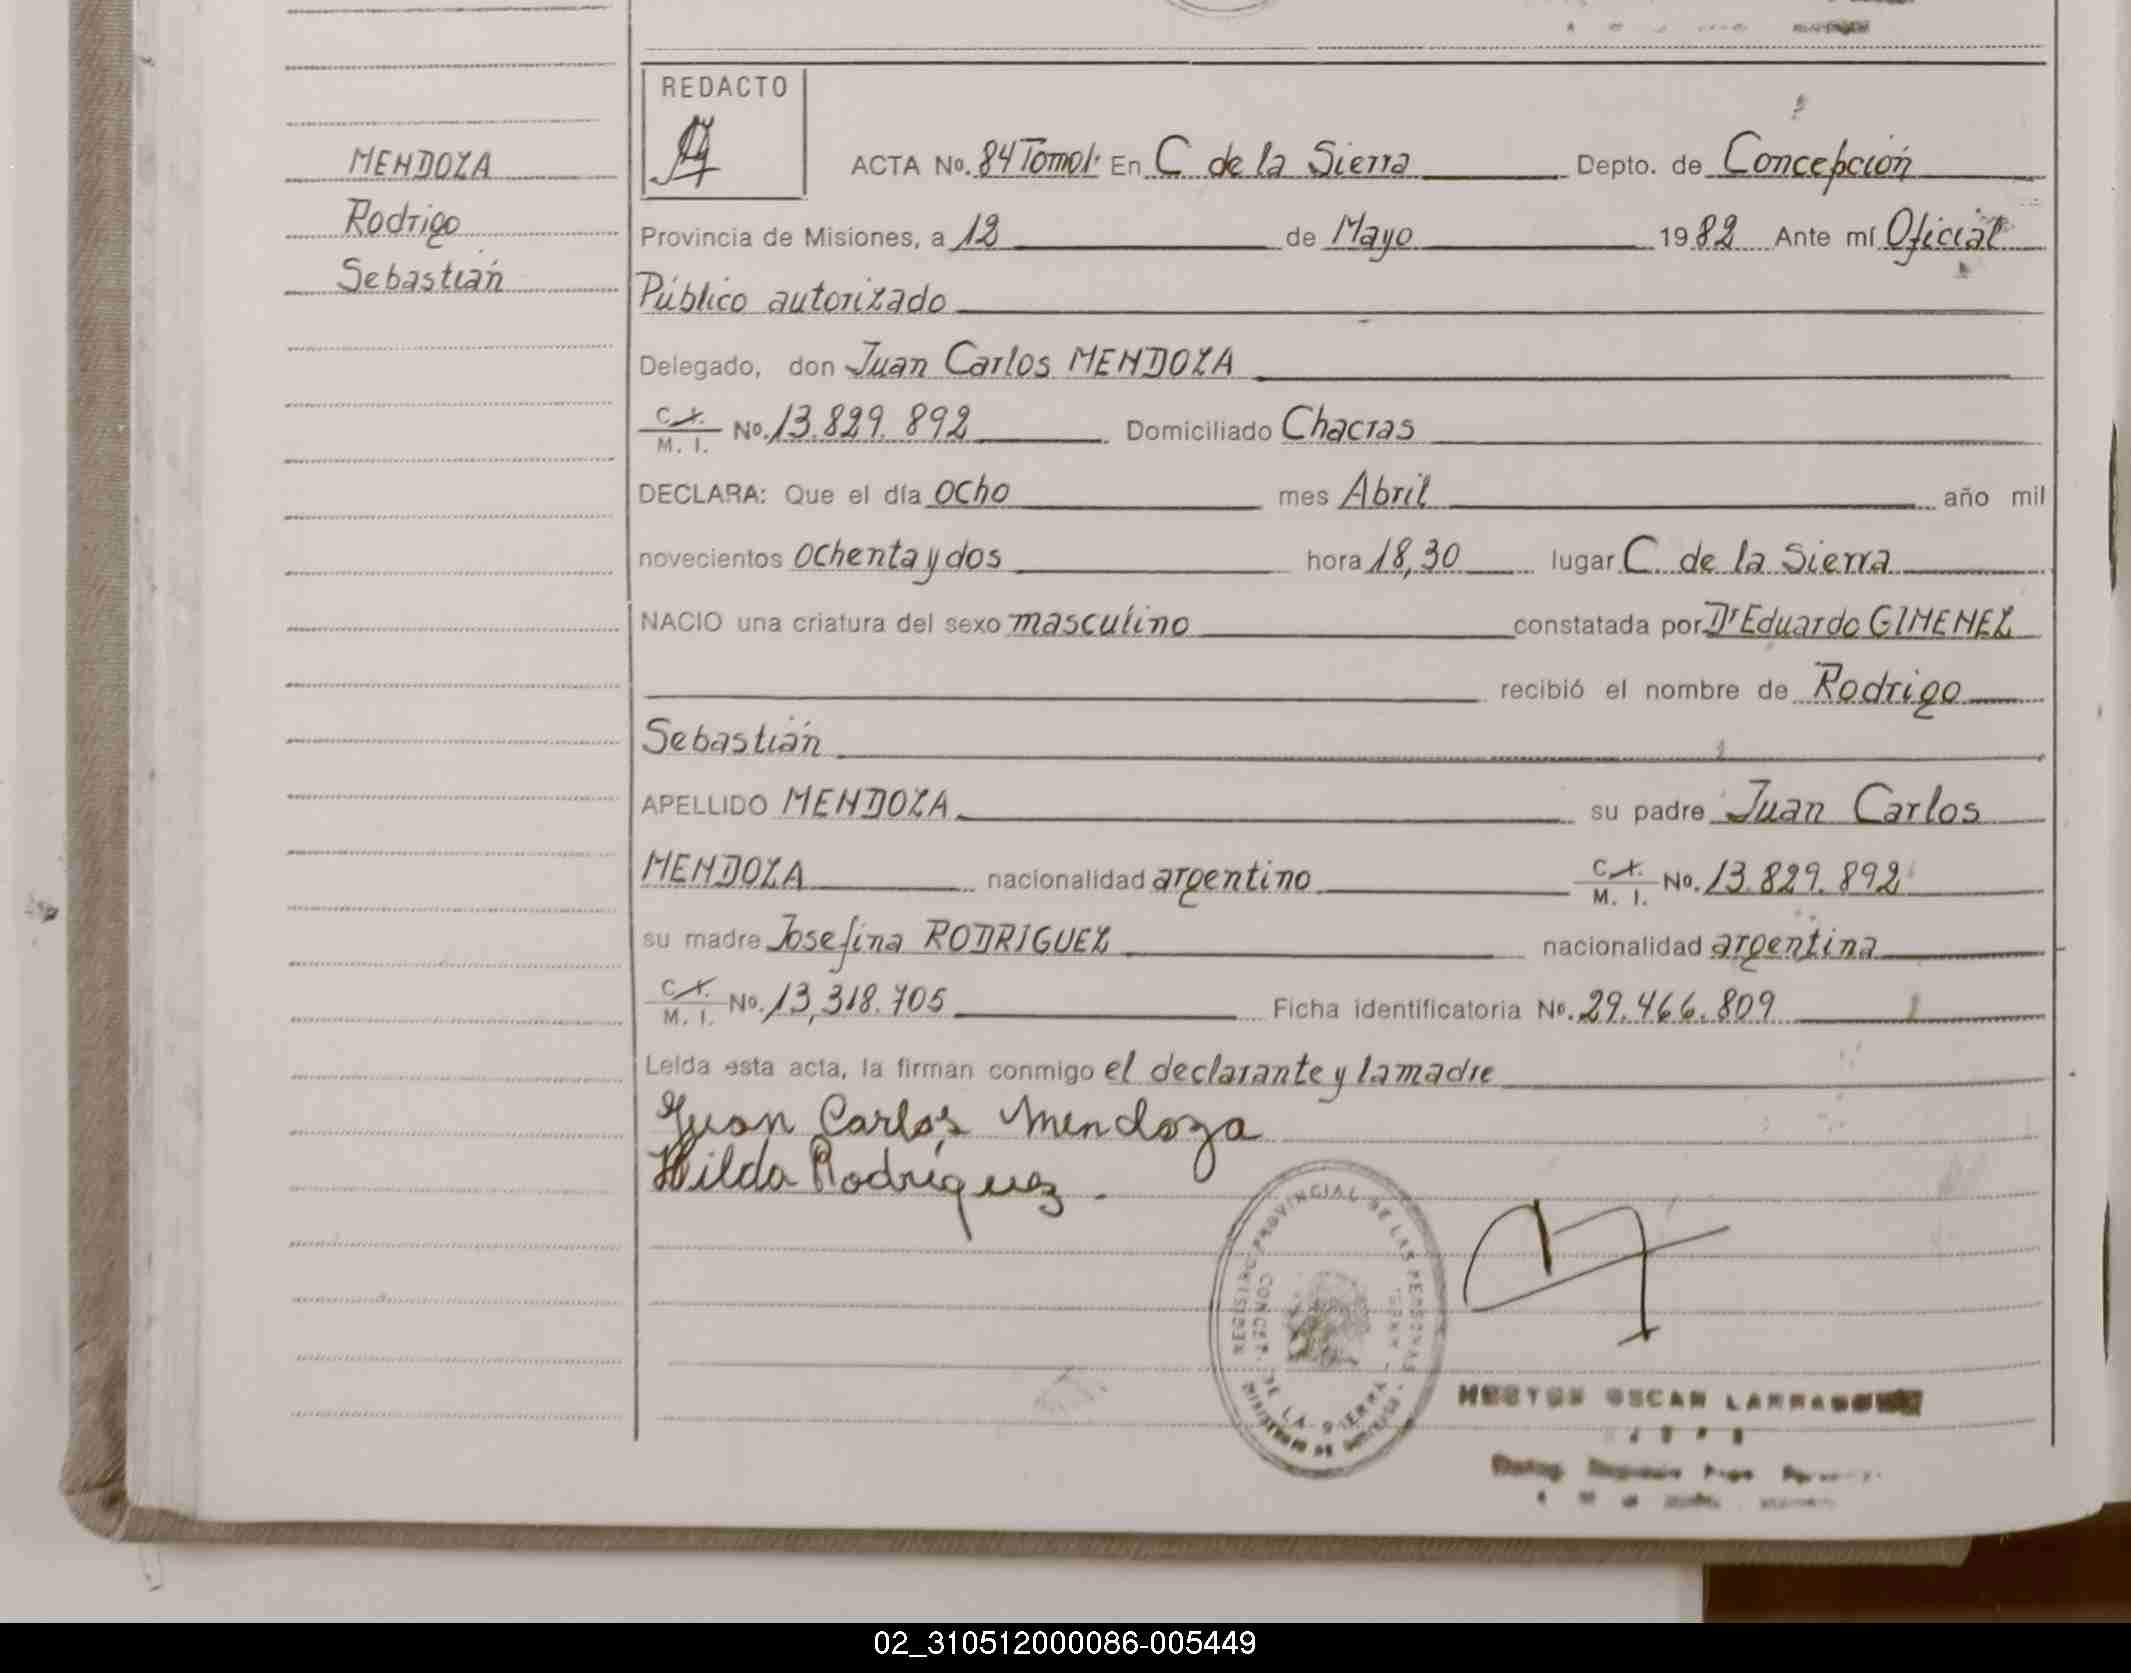 MENDOZA
Rodrigo
Sebastián
REDACTO
ACTA No. 84 Tomo I. En C de la Sierra Depto. de Concepción
Provincia de Misiones, a 12 de Mayo 1982 Ante mí Oficial
Público autorizado
Delegado, don Juan Carlos MENDOZA
C.I. M. I. No. 13.829.892 Domiciliado Chacras
DECLARA: Que el día ocho mes Abril año mil
novecientos ochenta y dos hora 18,30 lugar C. de la Sierra
NACIO una criatura del sexo masculino constatada por Dr Eduardo GIMENEZ
recibió el nombre de Rodrigo
Sebastián
APELLIDO MENDOZA su padre Juan Carlos
MENDOZA nacionalidad argentino C.I. M. I. No. 13.829.892
su madre Josefina RODRIGUEZ nacionalidad argentina
C.I. M. I. No. 13,318.705 Ficha identificatoria No. 29.466.809
Leída esta acta, la firman conmigo el declarante y la madre
Juan Carlos Mendoza
Hilda Rodríguez.
REGISTRO PROVINCIAL DE LAS PERSONAS
CONCEP. DE LA SIERRA
MINISTERIO DE
OSCAR
02_310512000086-005449